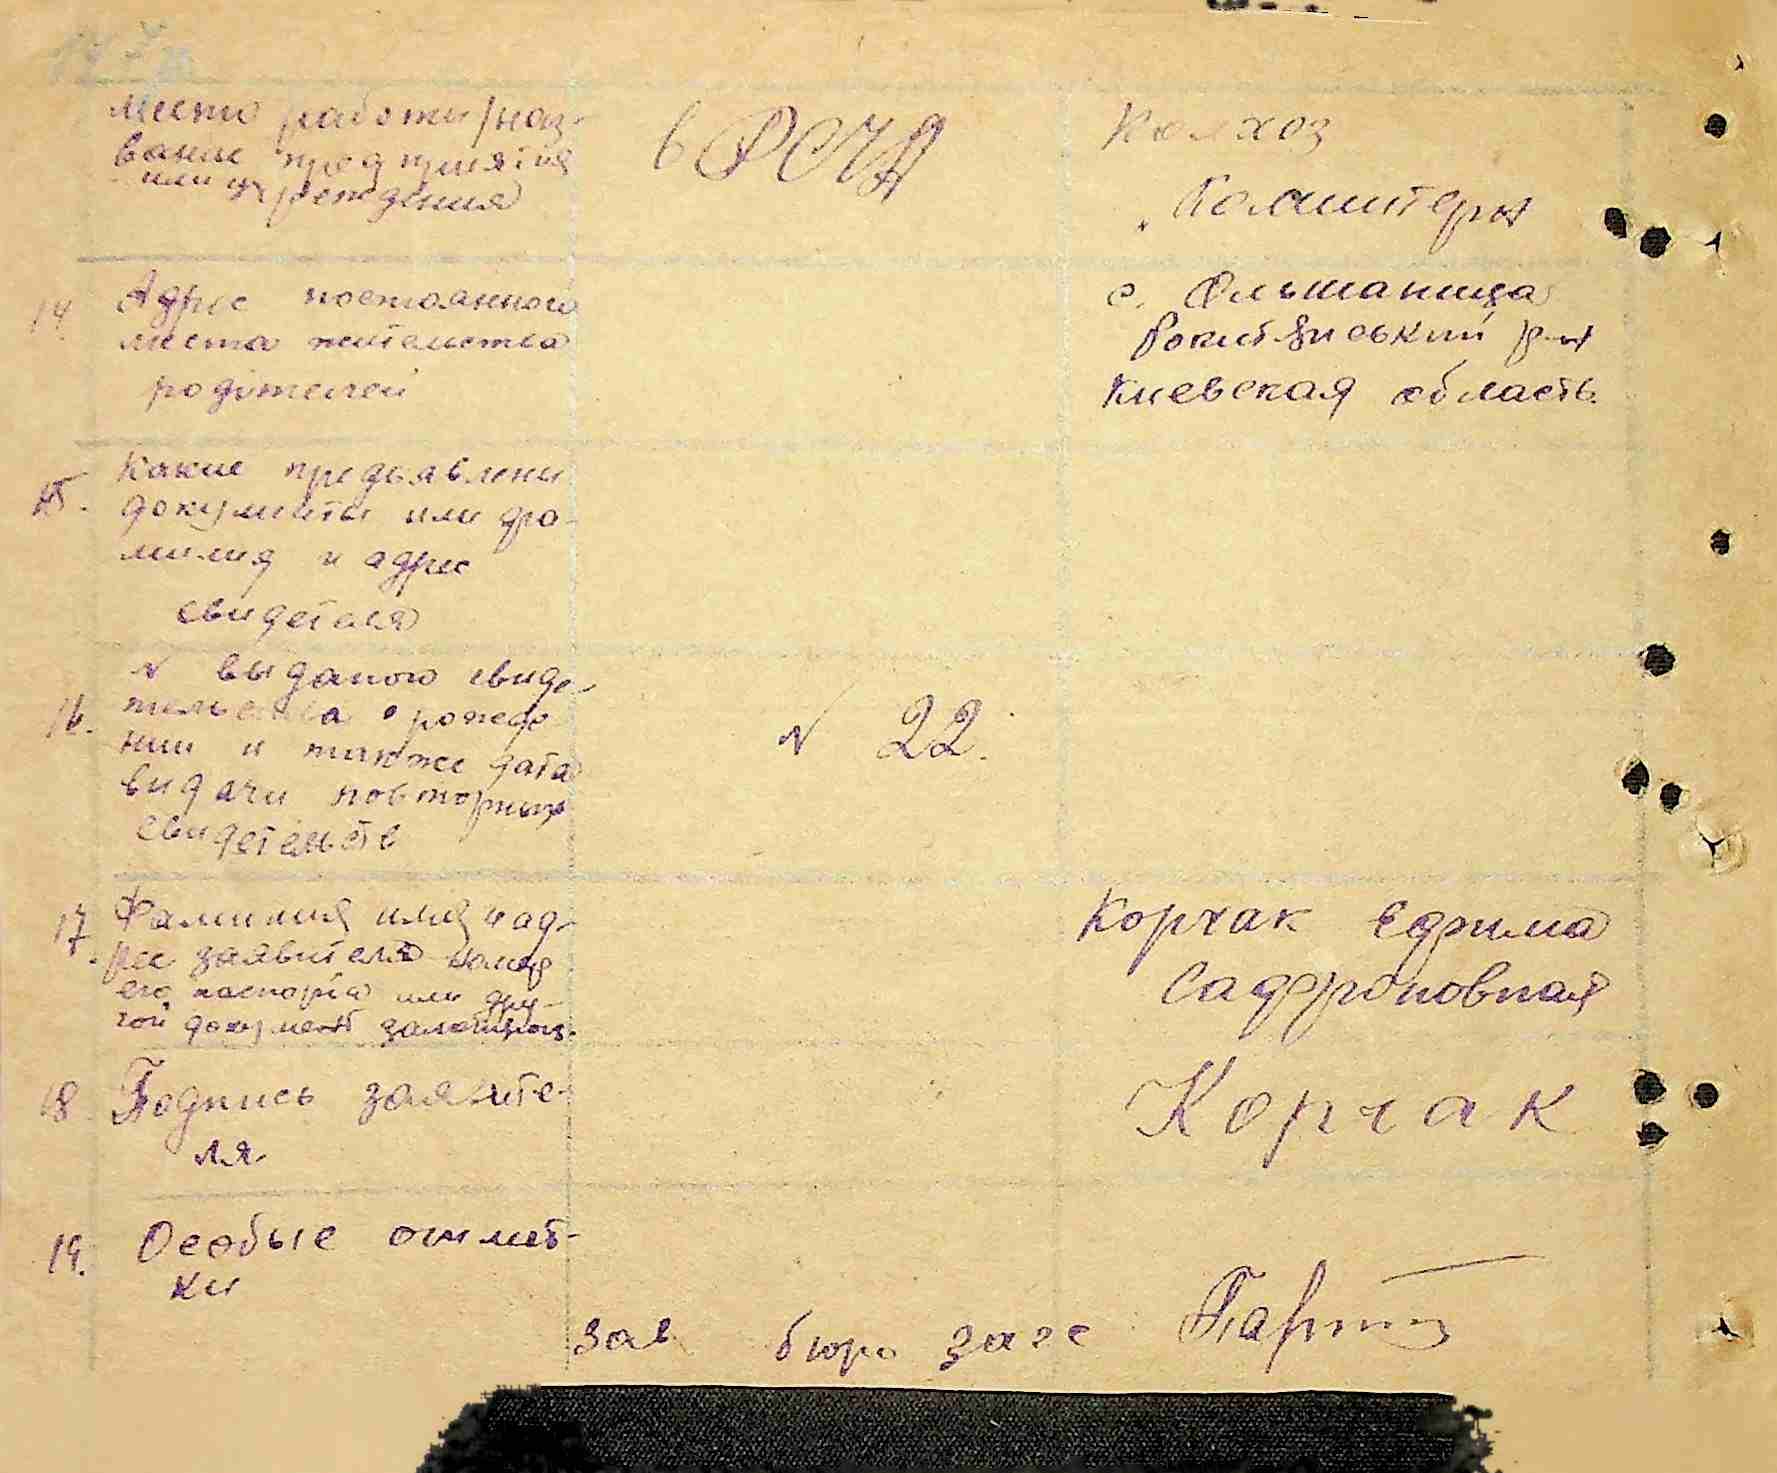 место работи/наз-
вание предприятия
или учреждения
в РСЧА
Колхоз
Коминтерн
14. Адрес постоянного
места жителства
родітелей
с. Ольшаница
Рокитянський р-н
Киевская область.
15. Какие предъявлени
документы или фа-
милия и адрес
свидетеля
16. № выданого свиде-
тельства о рожде
нии и также дата
видачи повторных
свидетельств
№ 22.
17. Фамилия имя и ад-
рес заявителя номер
его паспорта или дру-
гой документ
Корчак Ефима
Сафроновная
18. Подпись заявите-
ля
Корчак
19. Особые отмет-
ки
зав бюро загс